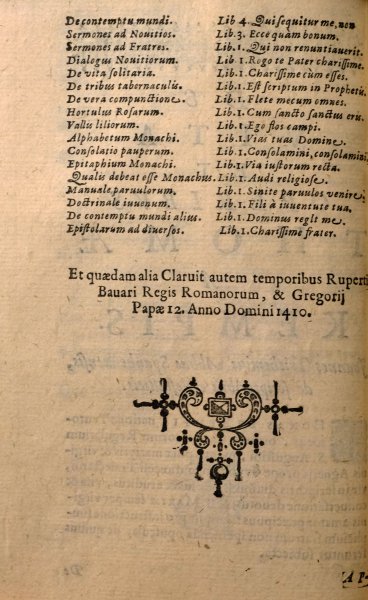 De contemptu mundi. Lib 4. Qui sequitur me, non
Sermones ad Nouitios. Lib. 3. Ecce quam bonum.
Sermones ad Fratres. Lib. 1. Qui non renuntiauerit.
Dialogus Nouitiorum. Lib 1. Rogo te Pater charissime.
De vita solitaria. Lib. 1. Charissime cum esses.
De tribus tabernaculis. Lib. 1. Est scriptum in Prophetis.
De vera compunctione. Lib. 1. Flete mecum omnes.
Hortulus Rosarum. Lib. 1. Cum sancto sanctus eris.
Vallis liliorum. Lib. 1. Ego flos campi.
Alphabetum Monachi. Lib. 1. Vias tuas Domine.
Consolatio pauperum. Lib. 1. Consolamini, consolamini,
Epitaphium Monachi. Lib. 1. Via iustorum recta.
Qualis debeat esse Monachus. Lib. 1. Audi religiose.
Manuale paruulorum. Lib. 1. Sinite paruulos venire
Doctrinale iuuenum. Lib. 1. Fili à iuuentute tua.
De contemptu mundi alius. Lib. 1. Dominus regit me.
Epistolarum ad diuersos. Lib. 1. Charissime frater.
Et quædam alia Claruit autem temporibus Ruperti
Bauari Regis Romanorum, & Gregorij
Papæ 12. Anno Domini 1410.